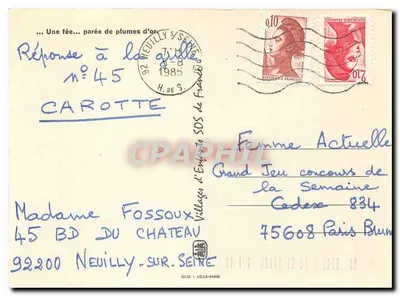 ... Une fée... parée de plumes d'or
Réponse à la grille
n° 45
CAROTTE
92 NEUILLY S/SEINE
8-8
1985
H. DE S.
0,10
2,10
Villages d'Enfants SOS de France
CPARFUM
Femme Actuelle
Grand Jeu concours de
la Semaine
Cedex 834
75608 Paris Brun
Madame FOSSOUX
45 BD DU CHATEAU
92200 NEUILLY-SUR-SEINE